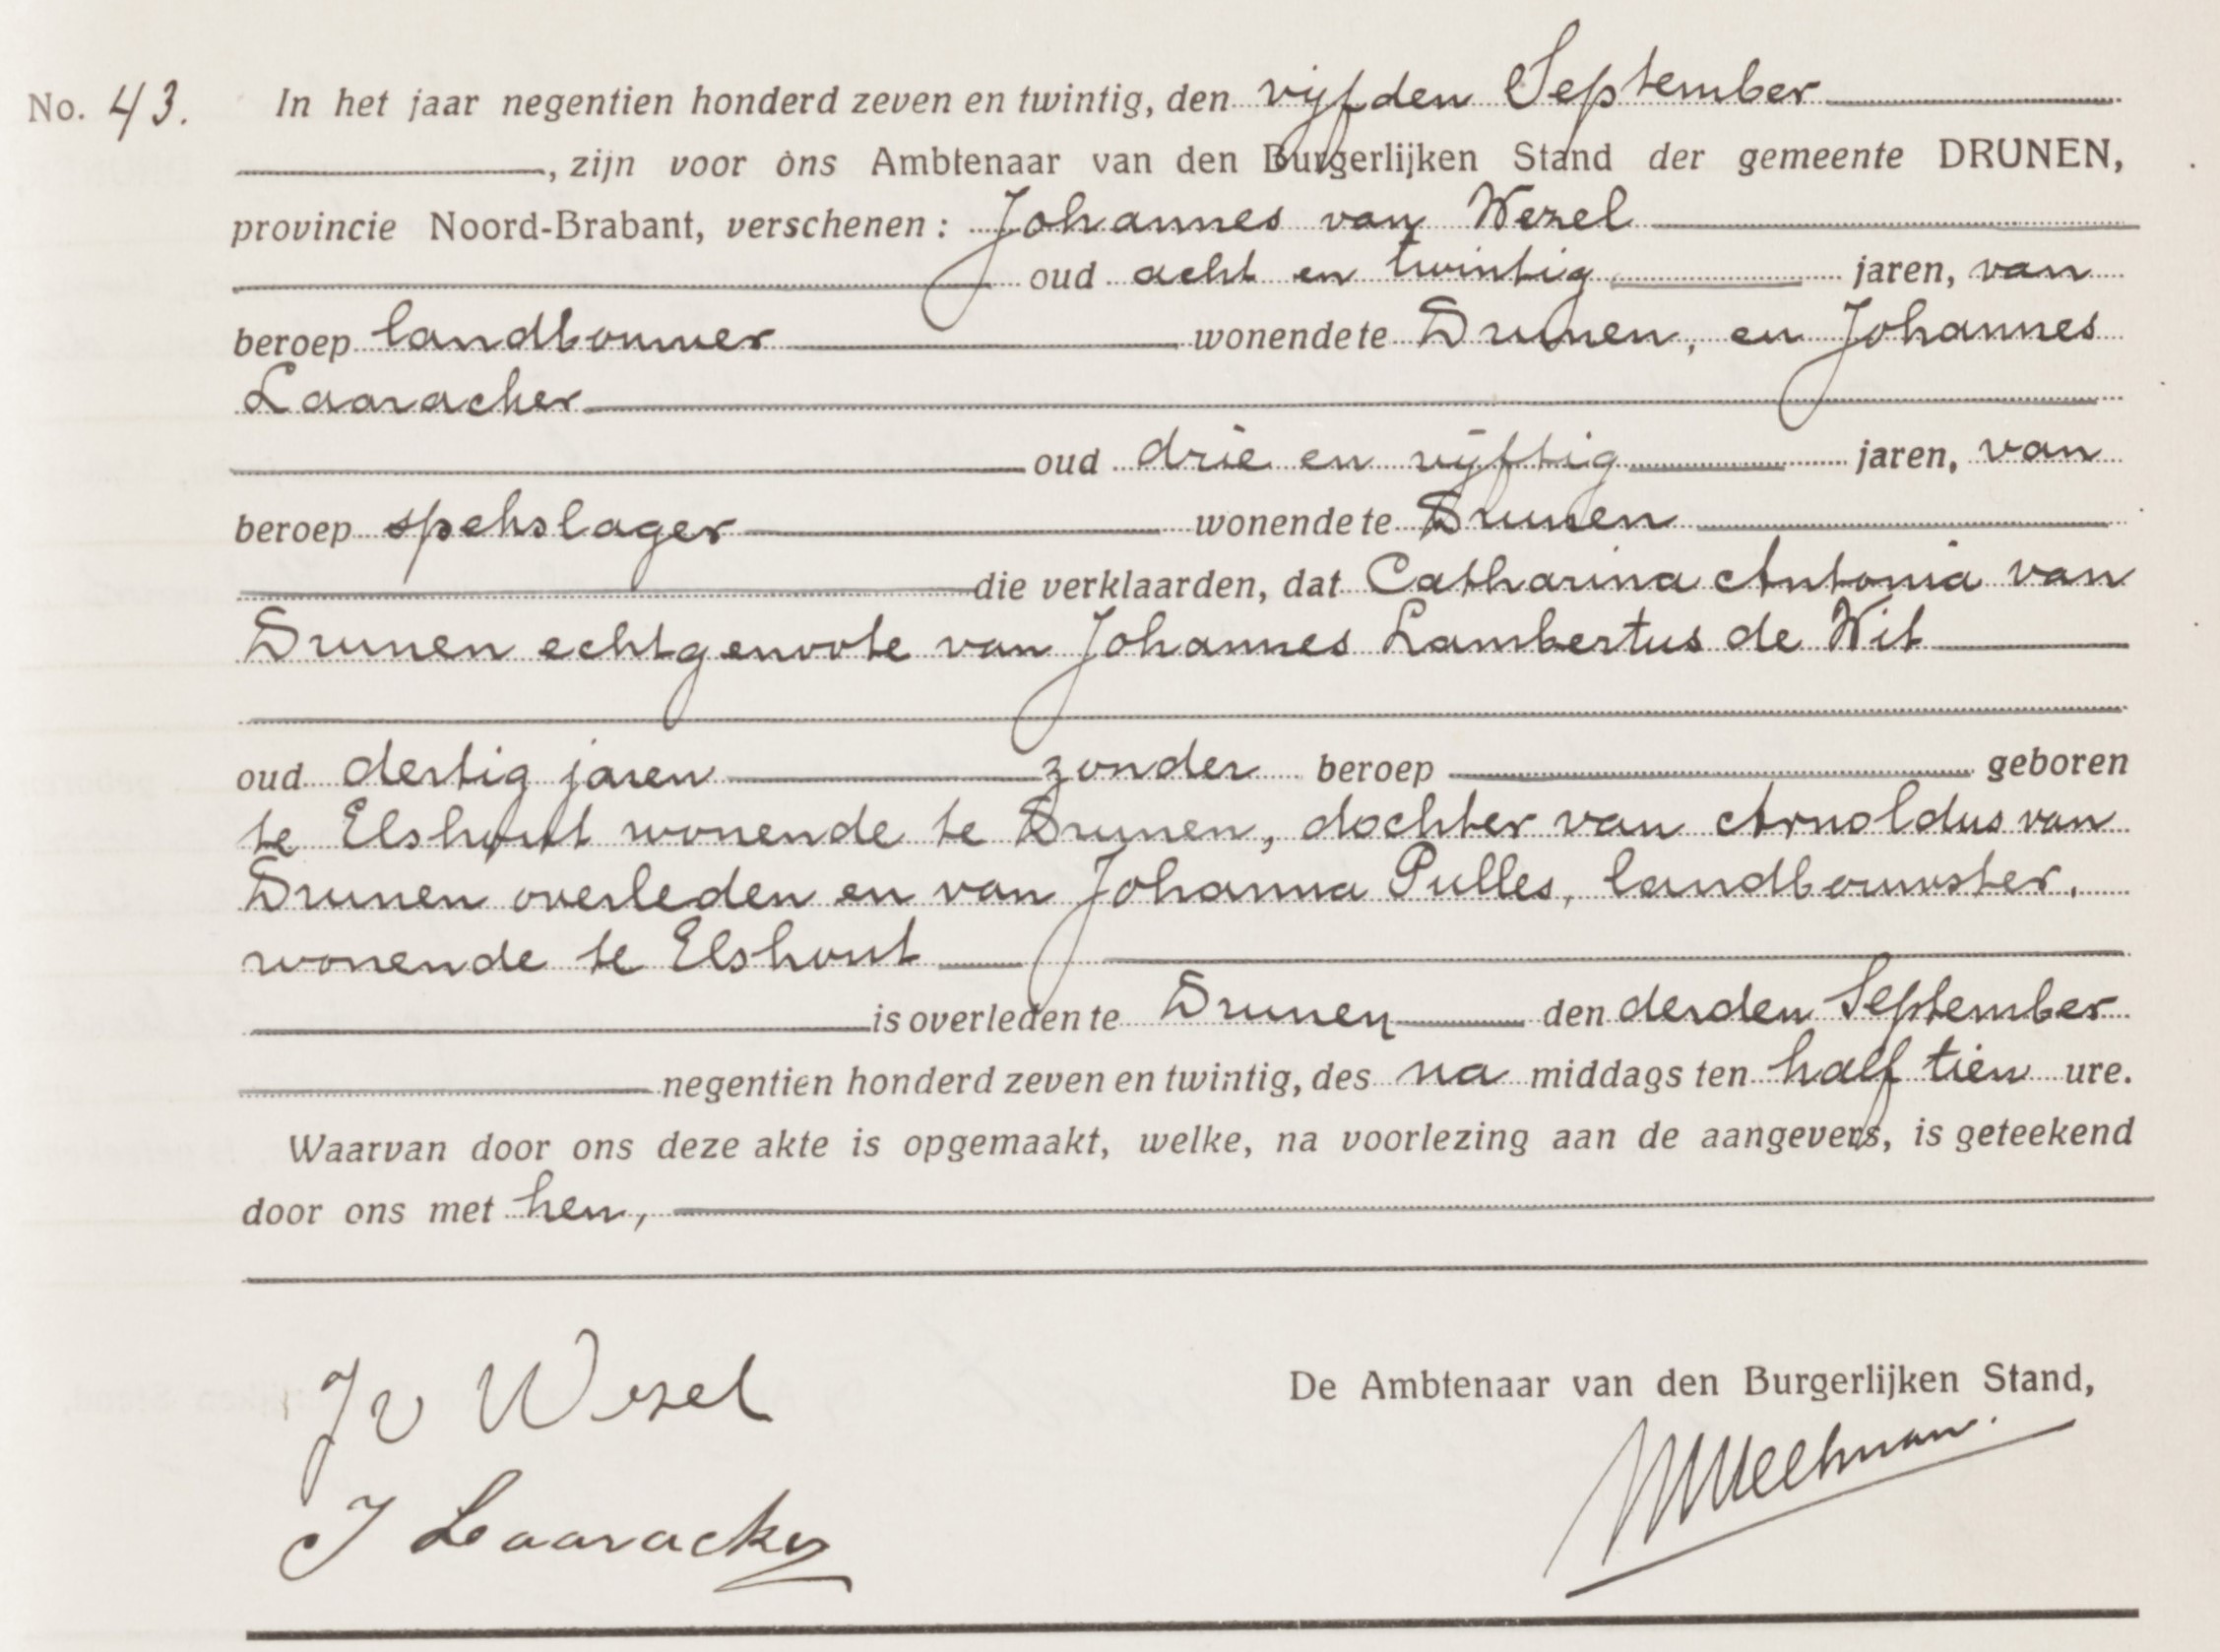 No. 43. In het jaar negentien honderd zeven en twintig, den vijfden September
, zijn voor ons Ambtenaar van den Burgerlijken Stand der gemeente DRUNEN,
provincie Noord-Brabant, verschenen: Johannes van Wezel
oud acht en twintig jaren, van
beroep landbouwer wonende te Drunen, en Johannes
Laaracker
oud drie en vijftig jaren, van
beroep spekslager wonende te Drunen
die verklaarden, dat Catharina Antonia van
Drunen echtgenoote van Johannes Lambertus de Wit
oud dertig jaren zonder beroep geboren
te Elshout wonende te Drunen, dochter van Arnoldus van
Drunen overleden en van Johanna Pulles, landbouwster,
wonende te Elshout
is overleden te Drunen den derden September
negentien honderd zeven en twintig, des na middags ten half tien ure.
Waarvan door ons deze akte is opgemaakt, welke, na voorlezing aan de aangevers, is geteekend
door ons met hen,
J v Wezel
De Ambtenaar van den Burgerlijken Stand,
J Laaracker